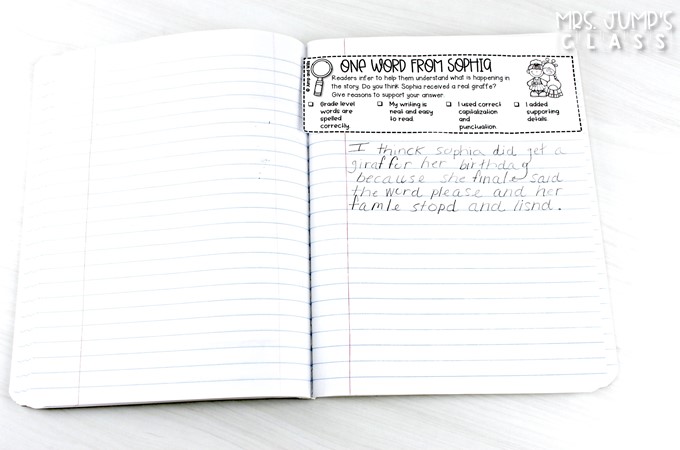 MRS. JUMP'S
CLASS
ONE WORD FROM SOPHIA
Readers infer to help them understand what is happening in
the story. Do you think Sophia received a real giraffe?
Give reasons to support your answer.
☐ Grade level
words are
spelled
correctly.
☐ My writing is
neat and easy
to read.
☐ I used correct
capitalization
and
punctuation.
☐ I added
supporting
details.
I thinck sophia did get a
girafffor her birthdag
because she finale said
the word please and her
famle stopd and lisnd.